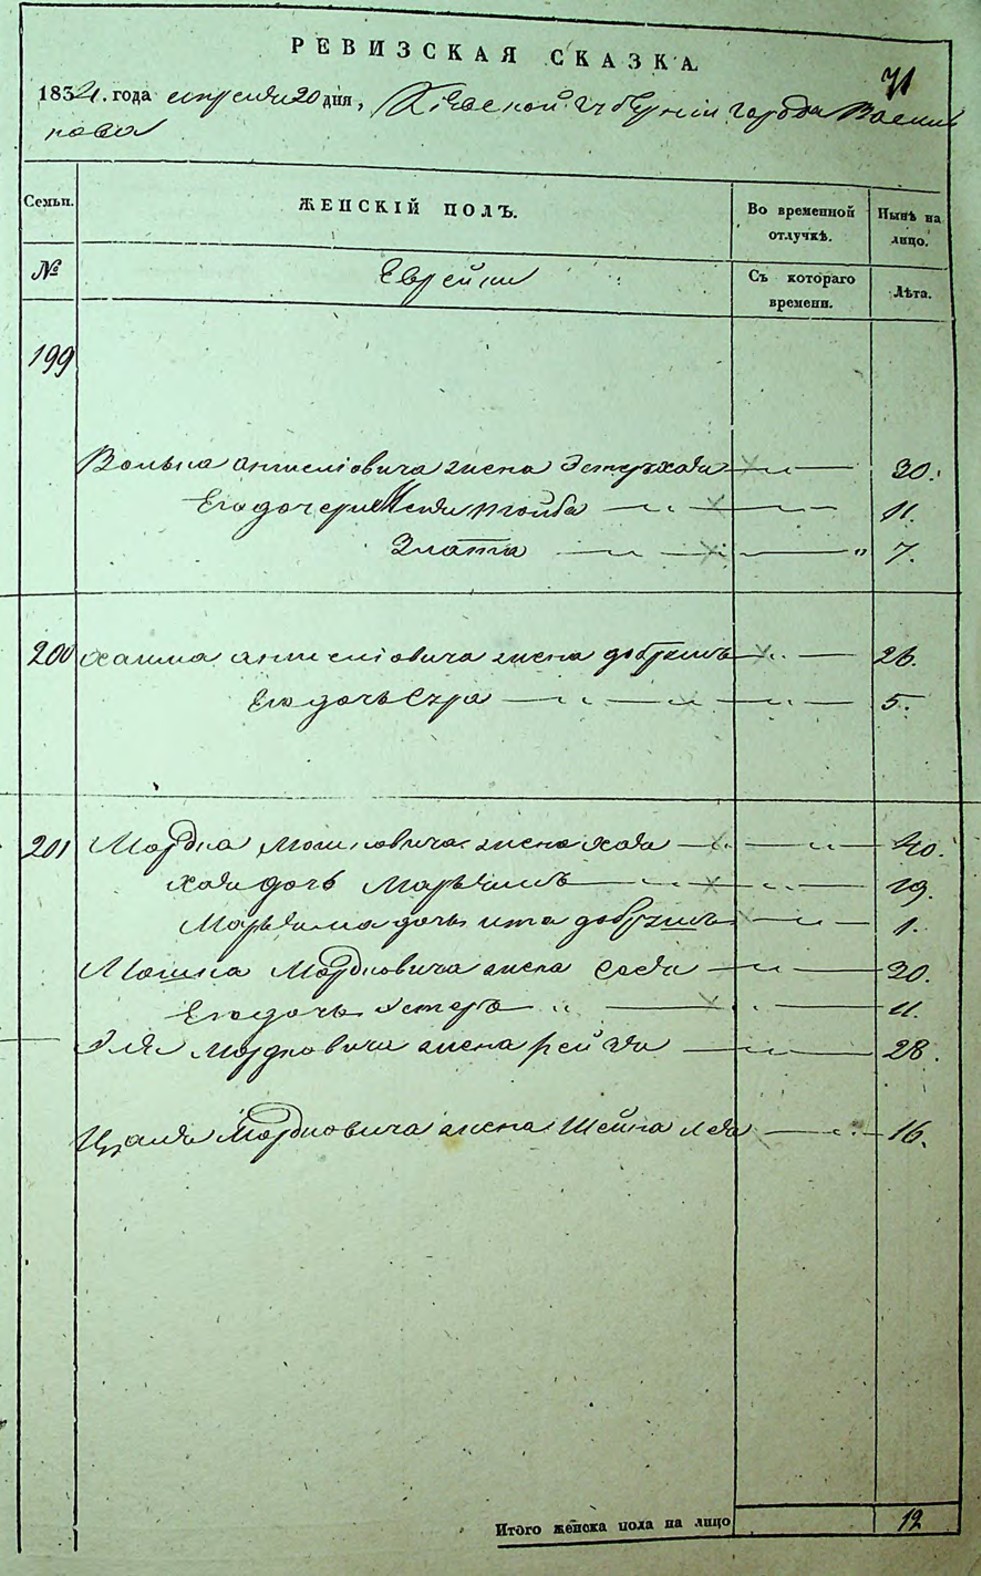 РЕВИЗСКАЯ СКАЗКА
71
1834. года апреля 20 дня, Кіевской губерніи города Василь
кова
Семьи.
ЖЕНСКІЙ ПОЛЪ.
Во временной отлучкѣ.
Нынѣ на лицо.
№
Еврейки
Съ котораго времени.
Лѣта.
199
Волька Аншелiовича жена Эстеръ хая 30.
Его дочери Тойба 11.
Злата 7.
200 Хаима Аншелiовича жена добришъ 26.
Его дочь Сура 5.
201 Мордка Мошковича жена хая 40.
хаи дочь Марьямъ 19.
Марьяма дочь ита добришъ 1.
Мошка Мордковича жена Сося 30.
Его дочь Эстеръ 11.
Эля Мордковича жена рейзя 28.
Мордковича жена Шейна лея 16.
Итого женска пола на лицо 12